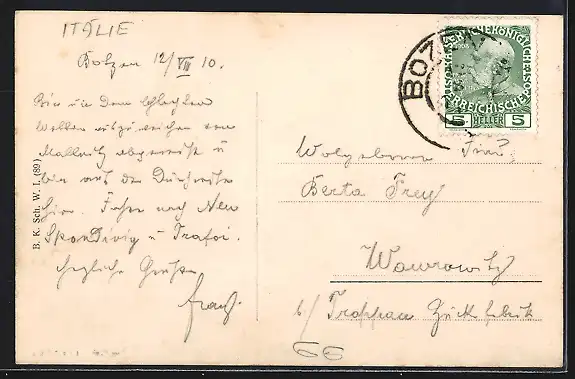 ITALIE
Botzen 12/VII 10.
Bin um dem schlechten
Wetter auszuweichen von
Mallnitz abgereist u
bin auf der Durchreise
hier. Fahre nach Neu
Spondinig u Trafoi.
herzliche Grüße
Franz.
B. K. Sch. W. I. (89)
BOZEN
KAISERLICHE KÖNIGLICHE
ÖSTERREICHISCHE
5 HELLER 5
Wolgeboren Frau
Berta Frey
Wawrowitz
b/ Troppau Zuckfabrik
66